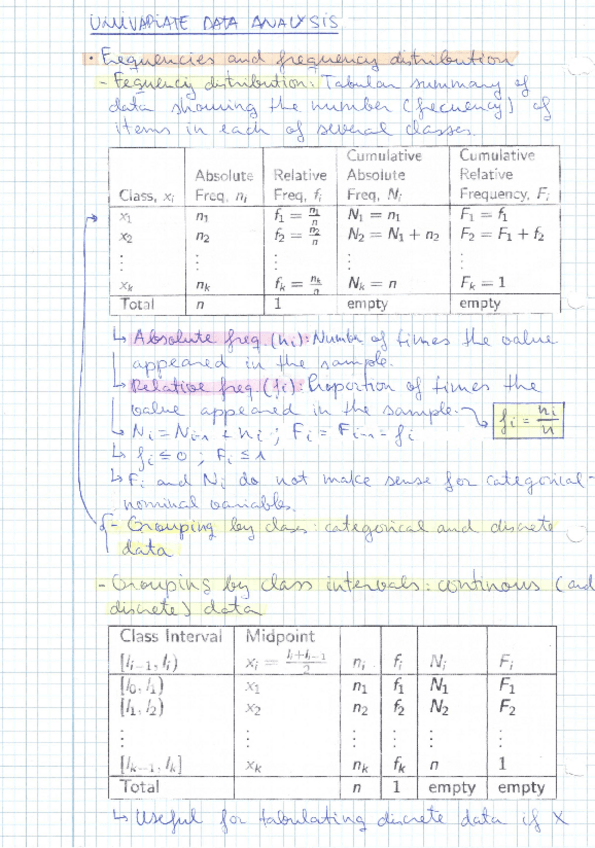 UNIVARIATE DATA ANALYSIS
· Frequencies and frequency distribution
- Fequency distribution: Tabular summary of
data showing the number (frecuency) of
items in each of several classes.
Class, xᵢ | Absolute Freq, nᵢ | Relative Freq, fᵢ | Cumulative Absolute Freq, Nᵢ | Cumulative Relative Frequency, Fᵢ
x₁ | n₁ | f₁ = n₁/n | N₁ = n₁ | F₁ = f₁
x₂ | n₂ | f₂ = n₂/n | N₂ = N₁ + n₂ | F₂ = F₁ + f₂
⋮ | ⋮ | ⋮ | ⋮ | ⋮
xₖ | nₖ | fₖ = nₖ/n | Nₖ = n | Fₖ = 1
Total | n | 1 | empty | empty
↳ Absolute freq. (nᵢ): Number of times the value
appeared in the sample.
↳ Relative freq. (fᵢ): Proportion of times the
value appeared in the sample. → fᵢ = nᵢ/n
↳ Nᵢ = Nᵢ₋₁ + nᵢ ; Fᵢ = Fᵢ₋₁ - fᵢ
↳ fᵢ ≤ 0 ; Fᵢ ≤ 1
↳ Fᵢ and Nᵢ do not make sense for categorical-
nominal variables.
- Grouping by class: categorical and discrete
data
- Grouping by class intervals: continous (and
discrete) data
Class Interval [lᵢ₋₁, lᵢ) | Midpoint xᵢ = (lᵢ+lᵢ₋₁)/2 | nᵢ | fᵢ | Nᵢ | Fᵢ
[l₀, l₁) | x₁ | n₁ | f₁ | N₁ | F₁
[l₁, l₂) | x₂ | n₂ | f₂ | N₂ | F₂
⋮ | ⋮ | ⋮ | ⋮ | ⋮ | ⋮
[lₖ₋₁, lₖ] | xₖ | nₖ | fₖ | n | 1
Total | n | 1 | empty | empty
↳ Useful for tabulating discrete data if X